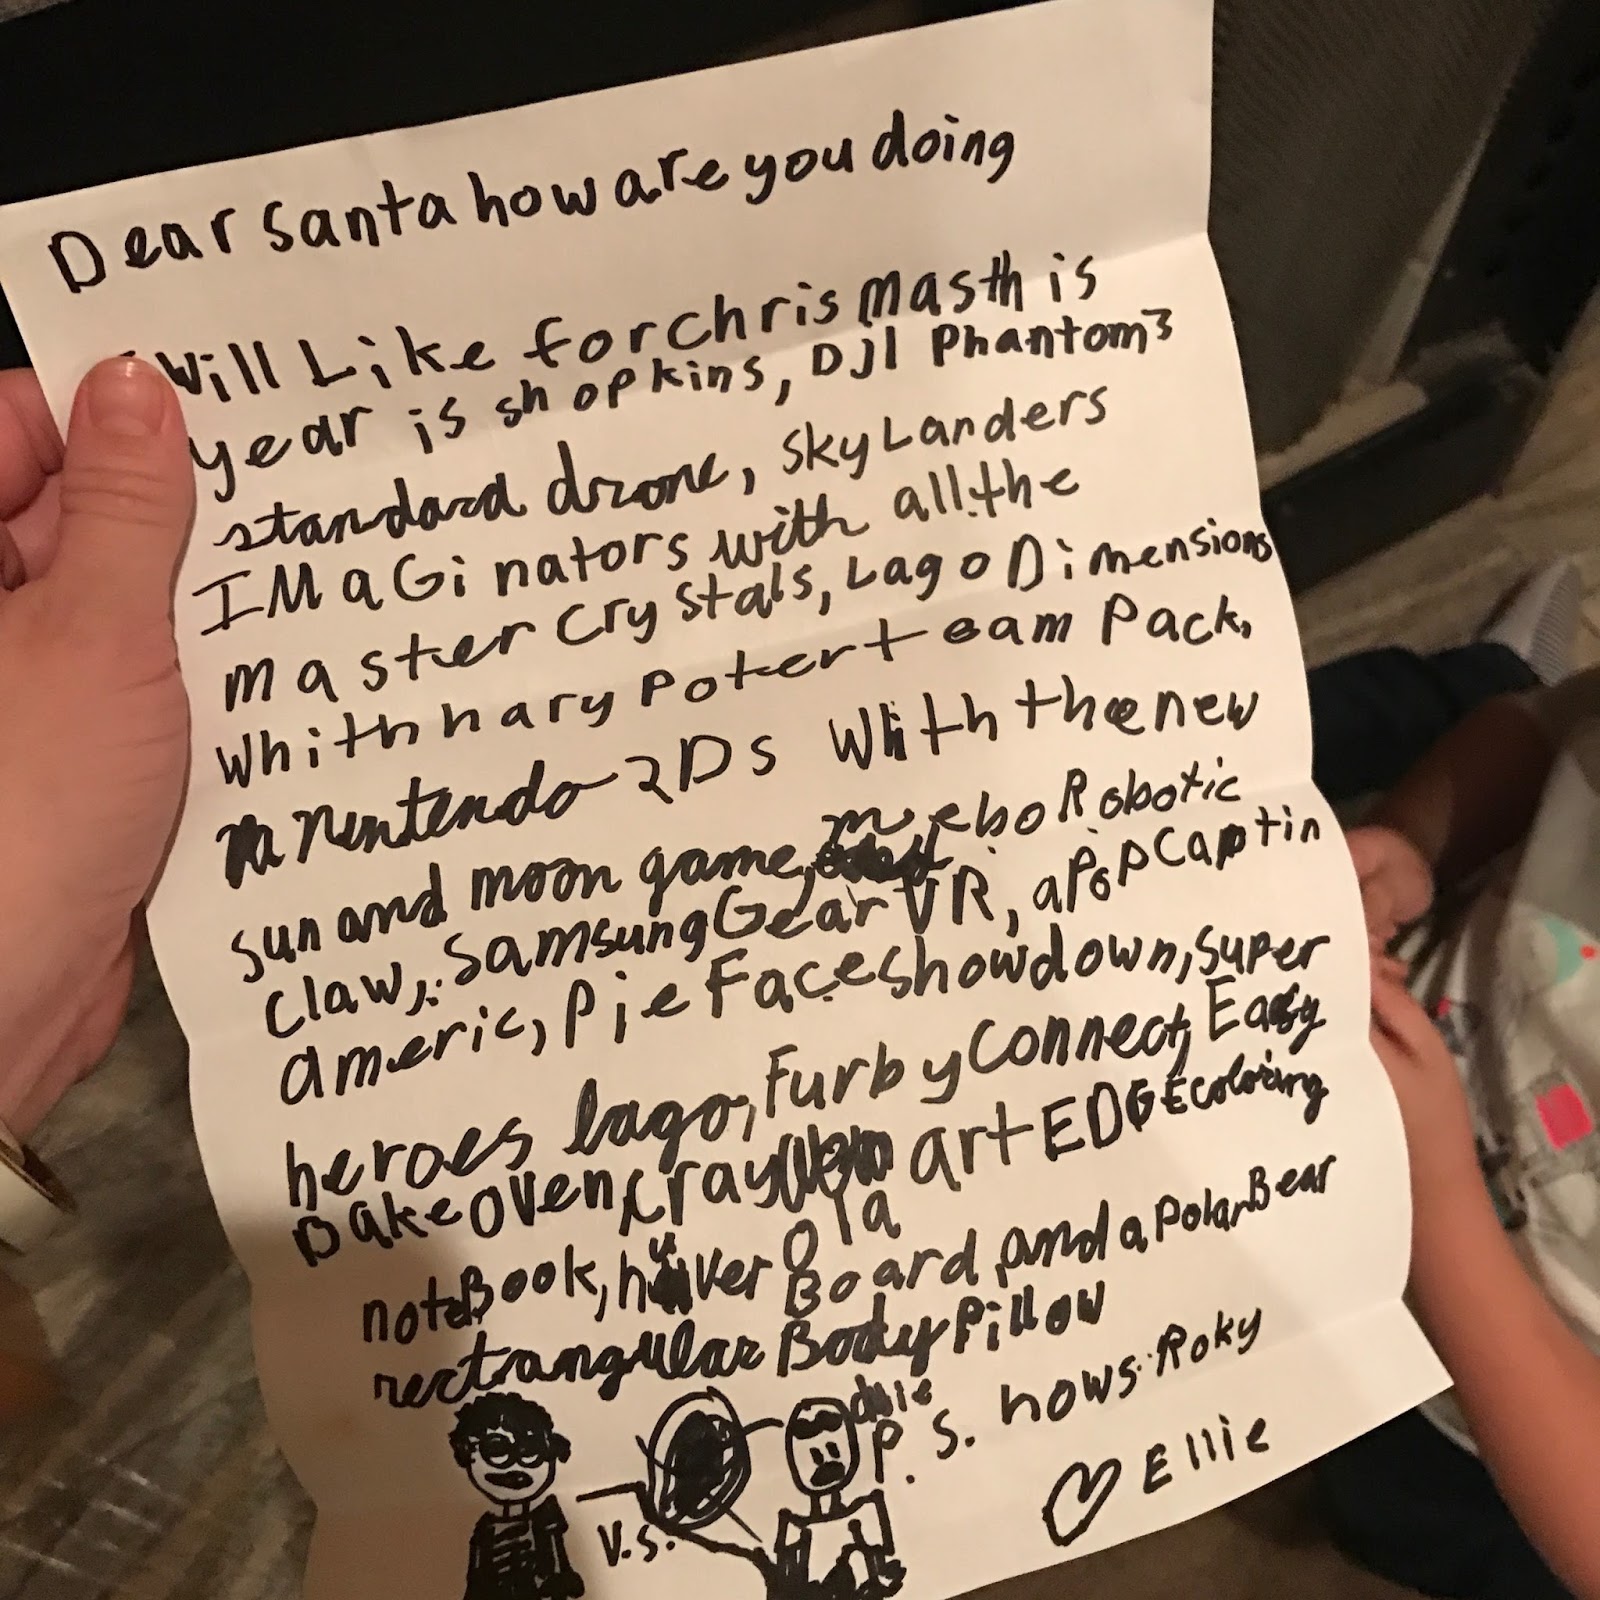 Dear Santa how are you doing
Will Like for chrismas this
year is shopkins, DJI Phantom 3
standard drone, SkyLanders
IMaGinators with all the
master Crystals, Lago Dimensions
Whith hary Poter team Pack,
nintendo 2Ds With the new
sun and moon game, mebo Robotic
claw, Samsung Gear VR, a PoP Captin
americ, Pie Face showdown, Super
heroes lago, Furby Connect, Easy
Bake oven, Crayola art EDGE coloring
noteBook, huver Board, and a Polar Bear
rectangular Body Pillow
P.S. hows Roky
V.S.
Ellie